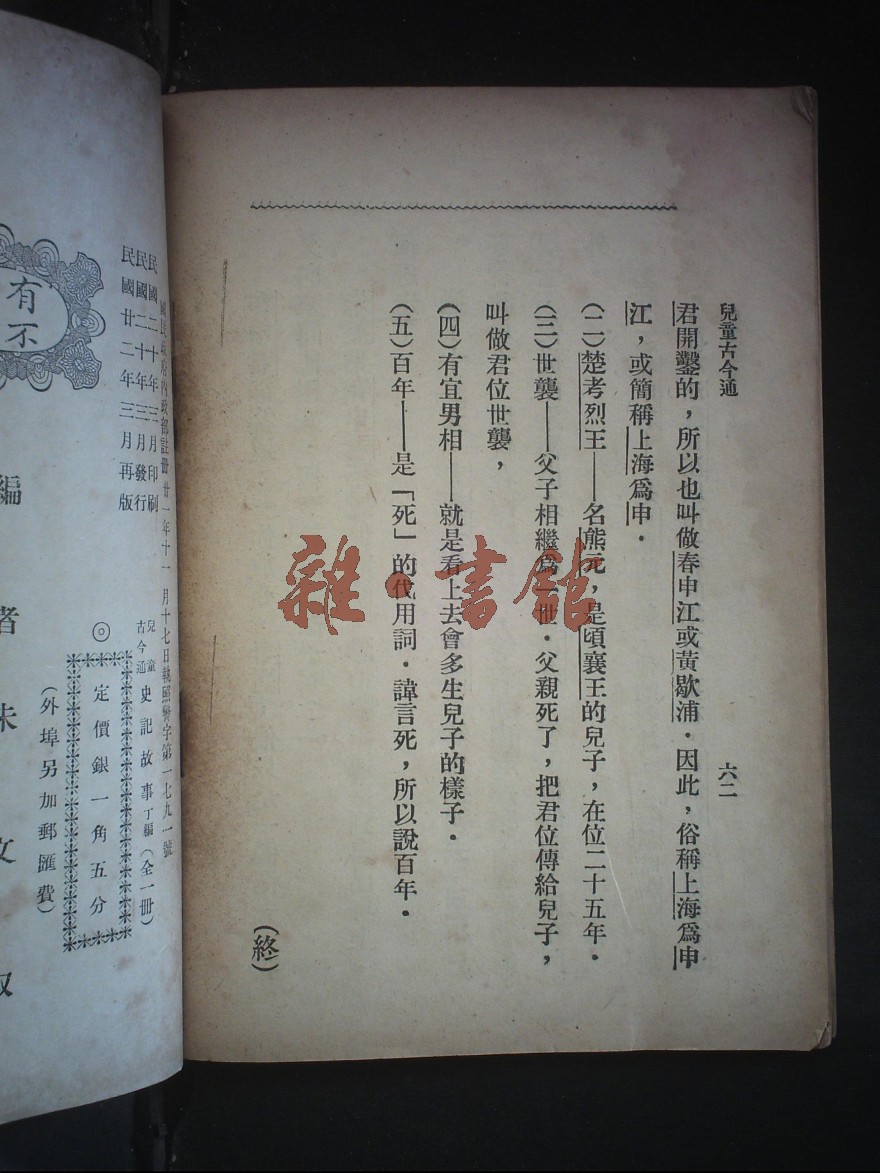 兒童古今通
六二
君開鑿的，所以也叫做春申江或黃歇浦．因此，俗稱上海爲申
江，或簡稱上海爲申．
（二）楚考烈王——名熊元，是頃襄王的兒子，在位二十五年．
（三）世襲——父子相繼爲一世．父親死了，把君位傳給兒子，
叫做君位世襲，
（四）有宜男相——就是看上去會多生兒子的樣子．
（五）百年——是「死」的代用詞．諱言死，所以說百年．
（終）
雜·書館
國民政府內政部註冊廿一年十一月十七日執照警字第一七九一號
民國二十年三月印刷
民國二十年三月發行
民國廿二年三月再版
兒童古今通 史記故事丁編（全一册）
◎
定價銀一角五分
（外埠另加郵匯費）
有不
編者朱文叔